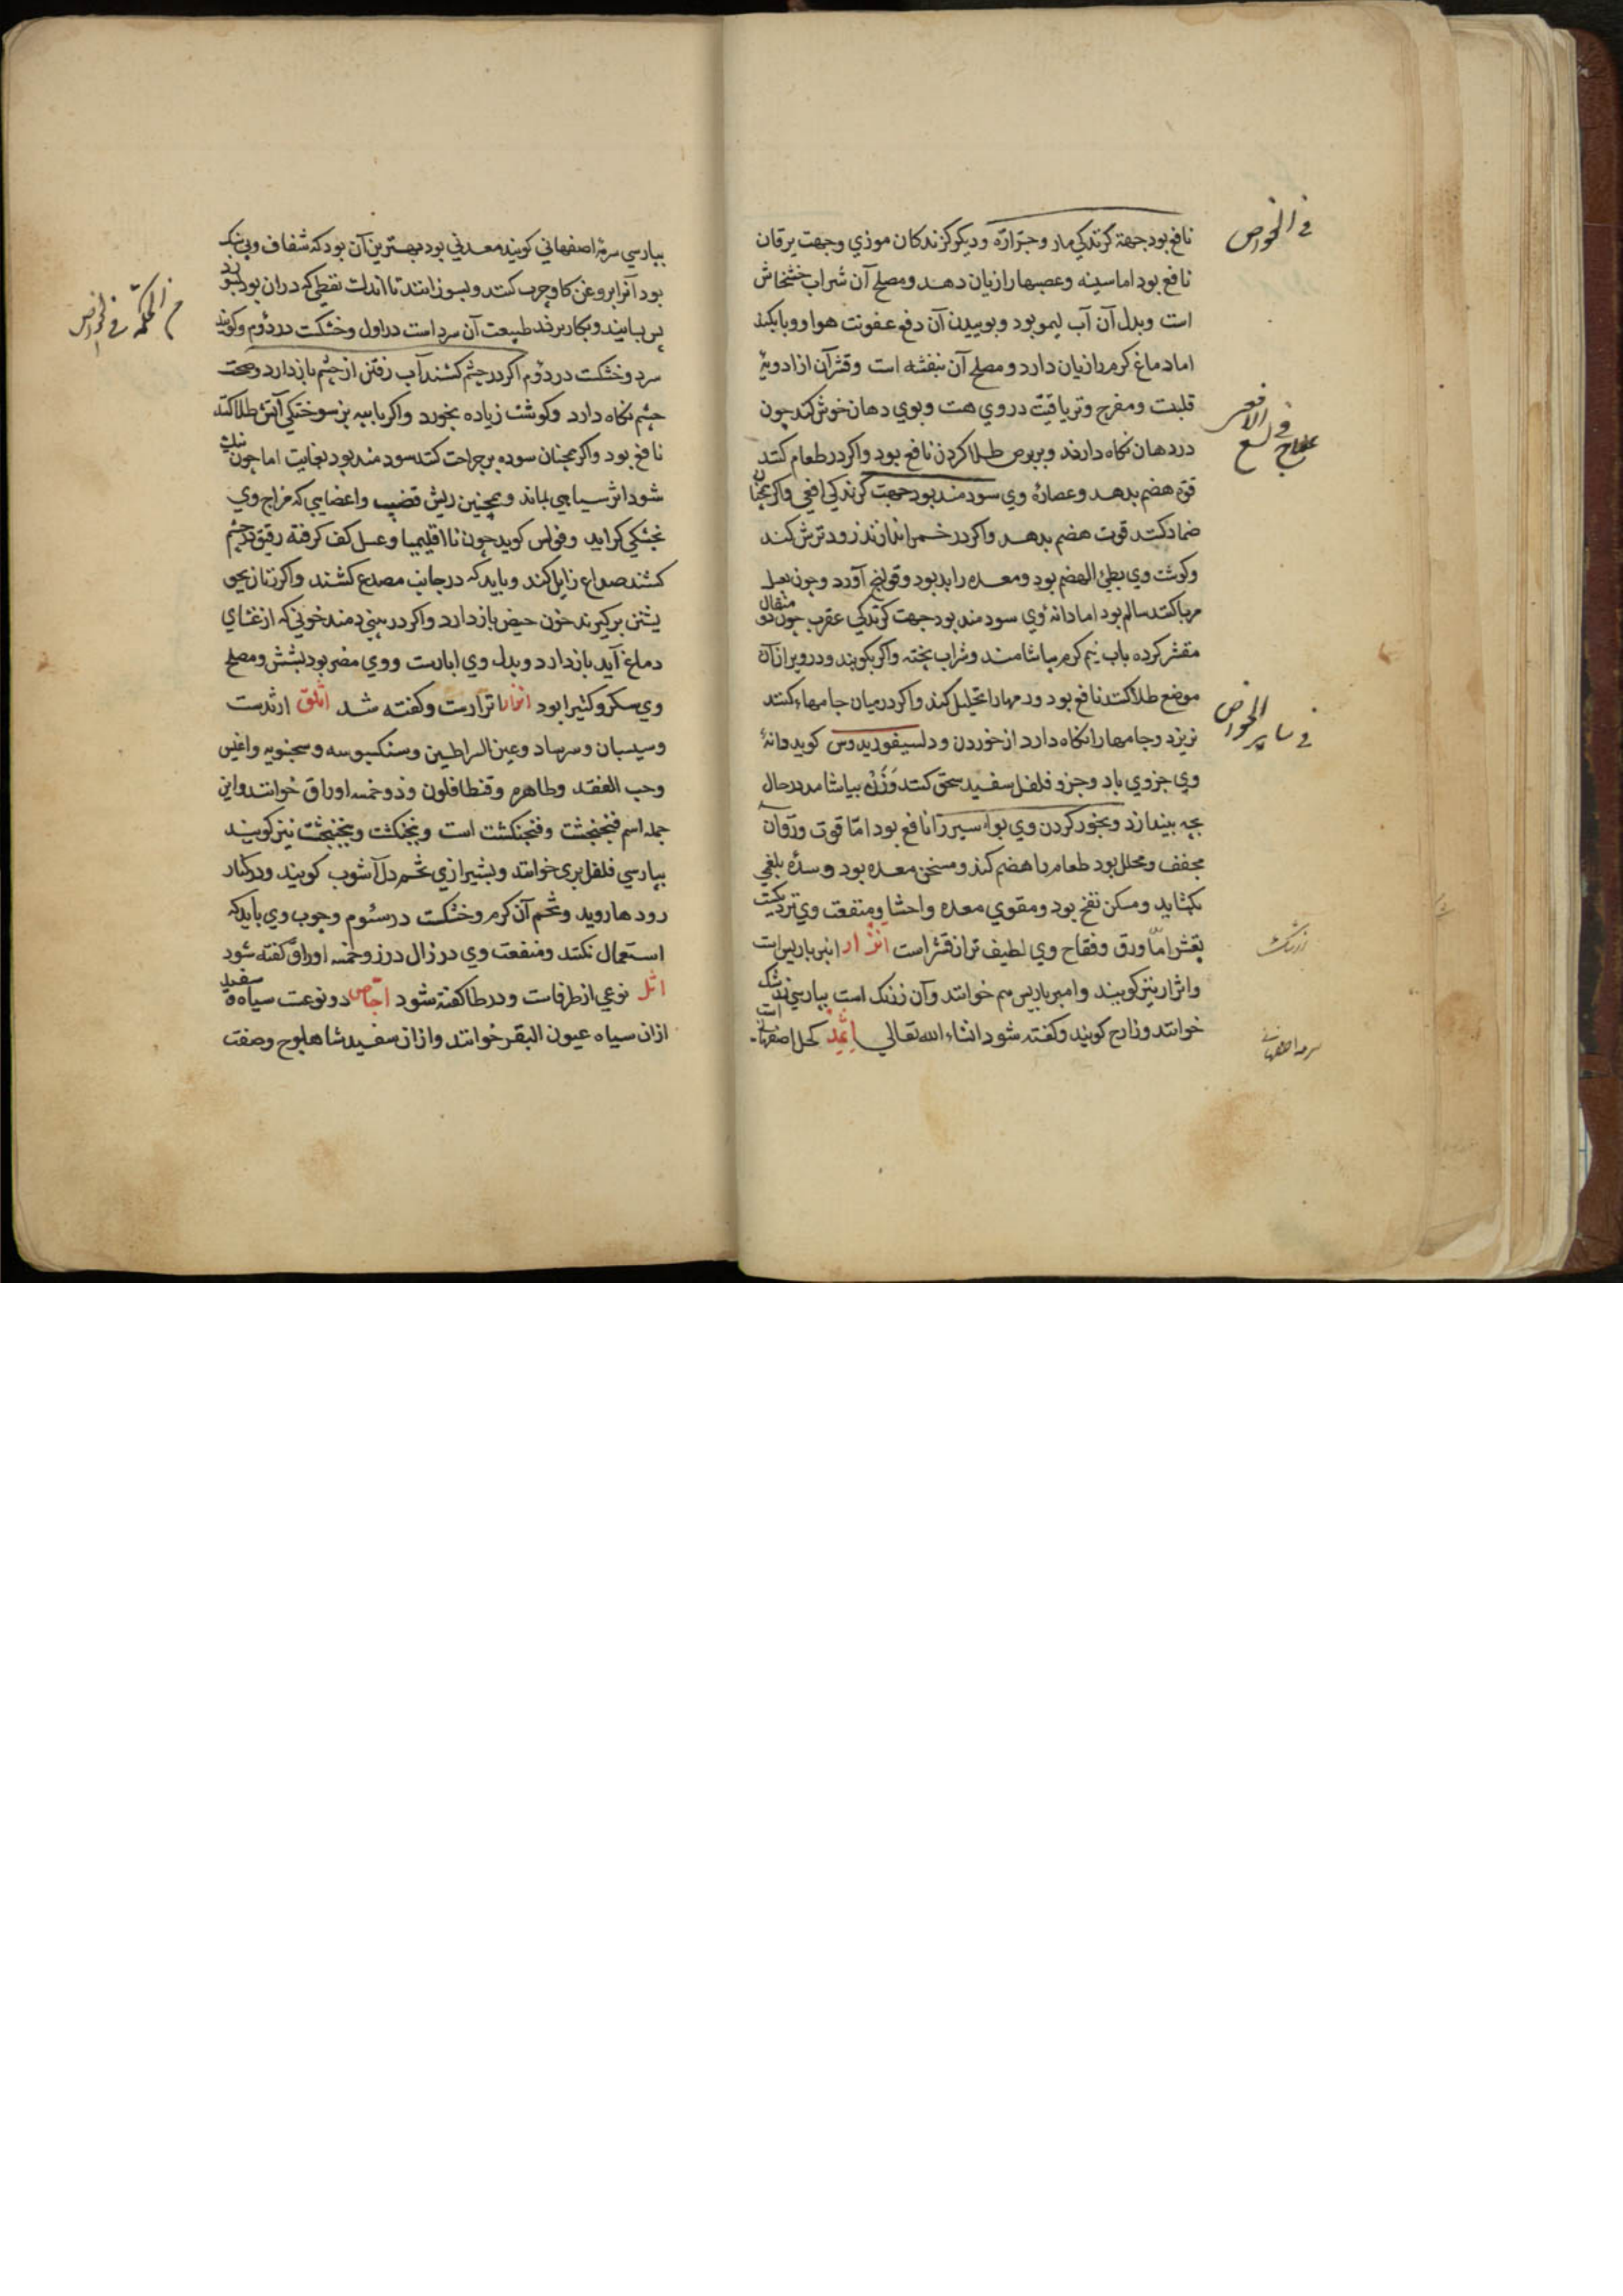 نافع بود جهة کزندکی مار و جرّاره و دیکر کزندکان موذی و جهت یرقان
نافع بود اما سینه و عصبها را زیان دهد و مصلح آن شراب خشخاش
است و بدل آن آب لیمو بود و بوییدن آن دفع عفونت هوا و وبا بکند
اما دماغ کرم را زیان دارد و مصلح آن بنفشه است و قشر آن از ادویۀ
قلبیت و مفرح و تریاقیت در وی هست و بوی دهان خوش کند چون
در دهان نکاه دارند و بر برص طلا کردن نافع بود و اکر در طعام کنند
قوة هضم بدهد و عصارۀ وی سودمند بود جهت کزندکی افعی و اکر همچنان
ضماد کنند قوت هضم بدهد و اکر در خمر اندازند زود ترش کند
و کوشت وی بطئ الهضم بود و معده را بد بود و قولنج آورد و چون بعسل
مربا کنند سالم بود اما دانۀ وی سودمند بود جهت کزندکی عقرب چون دو مثقال
مقشر کرده باب نیم کرم بیاشامند و شراب پخته و اکر بکوبند و در ویر ازان
موضع طلا کنند نافع بود ورمها را تحلیل کند و اکر در میان جامها کنند
نریزد و جامها را نکاه دارد از خوردن و دلسیفوریدوس کوید دانۀ
وی جزوی باد و جزو فلفل سفید سحق کنند وزن بیاشامد در حال
بچه بیندازد و بخور کردن وی بواسیر را نافع بود امّا قوت ورق آن
مجفف و محلل بود طعام را هضم کند و مسخن معده بود و سدۀ بلغمی
بکشاید و مسکن نفخ بود و مقوی معده و احشا و منفعت وی نزدیکست
بقشر امّا ورق و فقاح وی لطیف تر از قشر است اثرار انبرباریس است
و اثرار نیز کویند و امیر باریس هم خوانند و آن زرنک است بپارسی زرشک
خوانند و زارج کویند و کفته شود انشاء الله تعالی اثمد کحل اصفهانی است
فی الخواص
علاج فی لسع الافعی
فی سایر الخواص
زرشک
سرمه اصفهانی
بپارسی سرمۀ اصفهانی کویند معدنی بود بهترین آن بود که شفاف و بی سنک
بود آنرا بروغن کاو چرب کنند و بسوزانند تا اندک نقطی که دران بود بسوزد
پس بسایند و بکار برند طبیعت آن سرد است در اول و خشکست در دوم و کویند
سرد و خشکست در دوم اکر در چشم کشند آب رفتن از چشم باز دارد و صحت
چشم نکاه دارد و کوشت زیاده بخورد و اکر با پیه بز سوختکی آتش طلا کنند
نافع بود و اکر همچنان سوده بر جراحت کنند سودمند بود بغایت اما چون نیک
شود اثر سیاهی بماند و همچنین ریش قضیب و اعضایی که مزاج وی
بخشکی کراید و فولس کوید چون با اقلیمیا و عسل کف کرفته رقیق در چشم
کشند صداع زایل کند و باید که در جانب مصدع کشند و اکر زنان بچو
پشن برکیرند خون حیض باز دارد و اکر در بینی دمند خونی که از غشای
دماغ آید باز دارد و بدل وی ابارست و وی مضر بود بشش و مصلح
وی سکر و کثیرا بود اثرارست و کفته شد اثلق ارثدست
و سیسبان و سرساد و عین السراطین و سنکسبوسه و سجنویه و اغلیس
و حب الفقد و طاهرم و قنطافلون و ذو خمسه اوراق خوانند و این
جمله اسم فنجنجشت و فنجنکشت است و پنجنکشت و بنجنجشت نیز کویند
بپارسی فلفل بری خوانند و بشیرازی تخم دل آشوب کویند و در کنار
رودها روید و تخم آن کرم و خشکست در سئوم و چوب وی باید که
استعمال نکنند و منفعت وی در زال در ذو خمسه اوراق کفته شود
اثل نوعی از طرفاست و در طا کفته شود اجّاص دو نوعست سیاه و سفید
ازان سیاه عیون البقر خوانند و ازان سفید شاهلوج و صفت